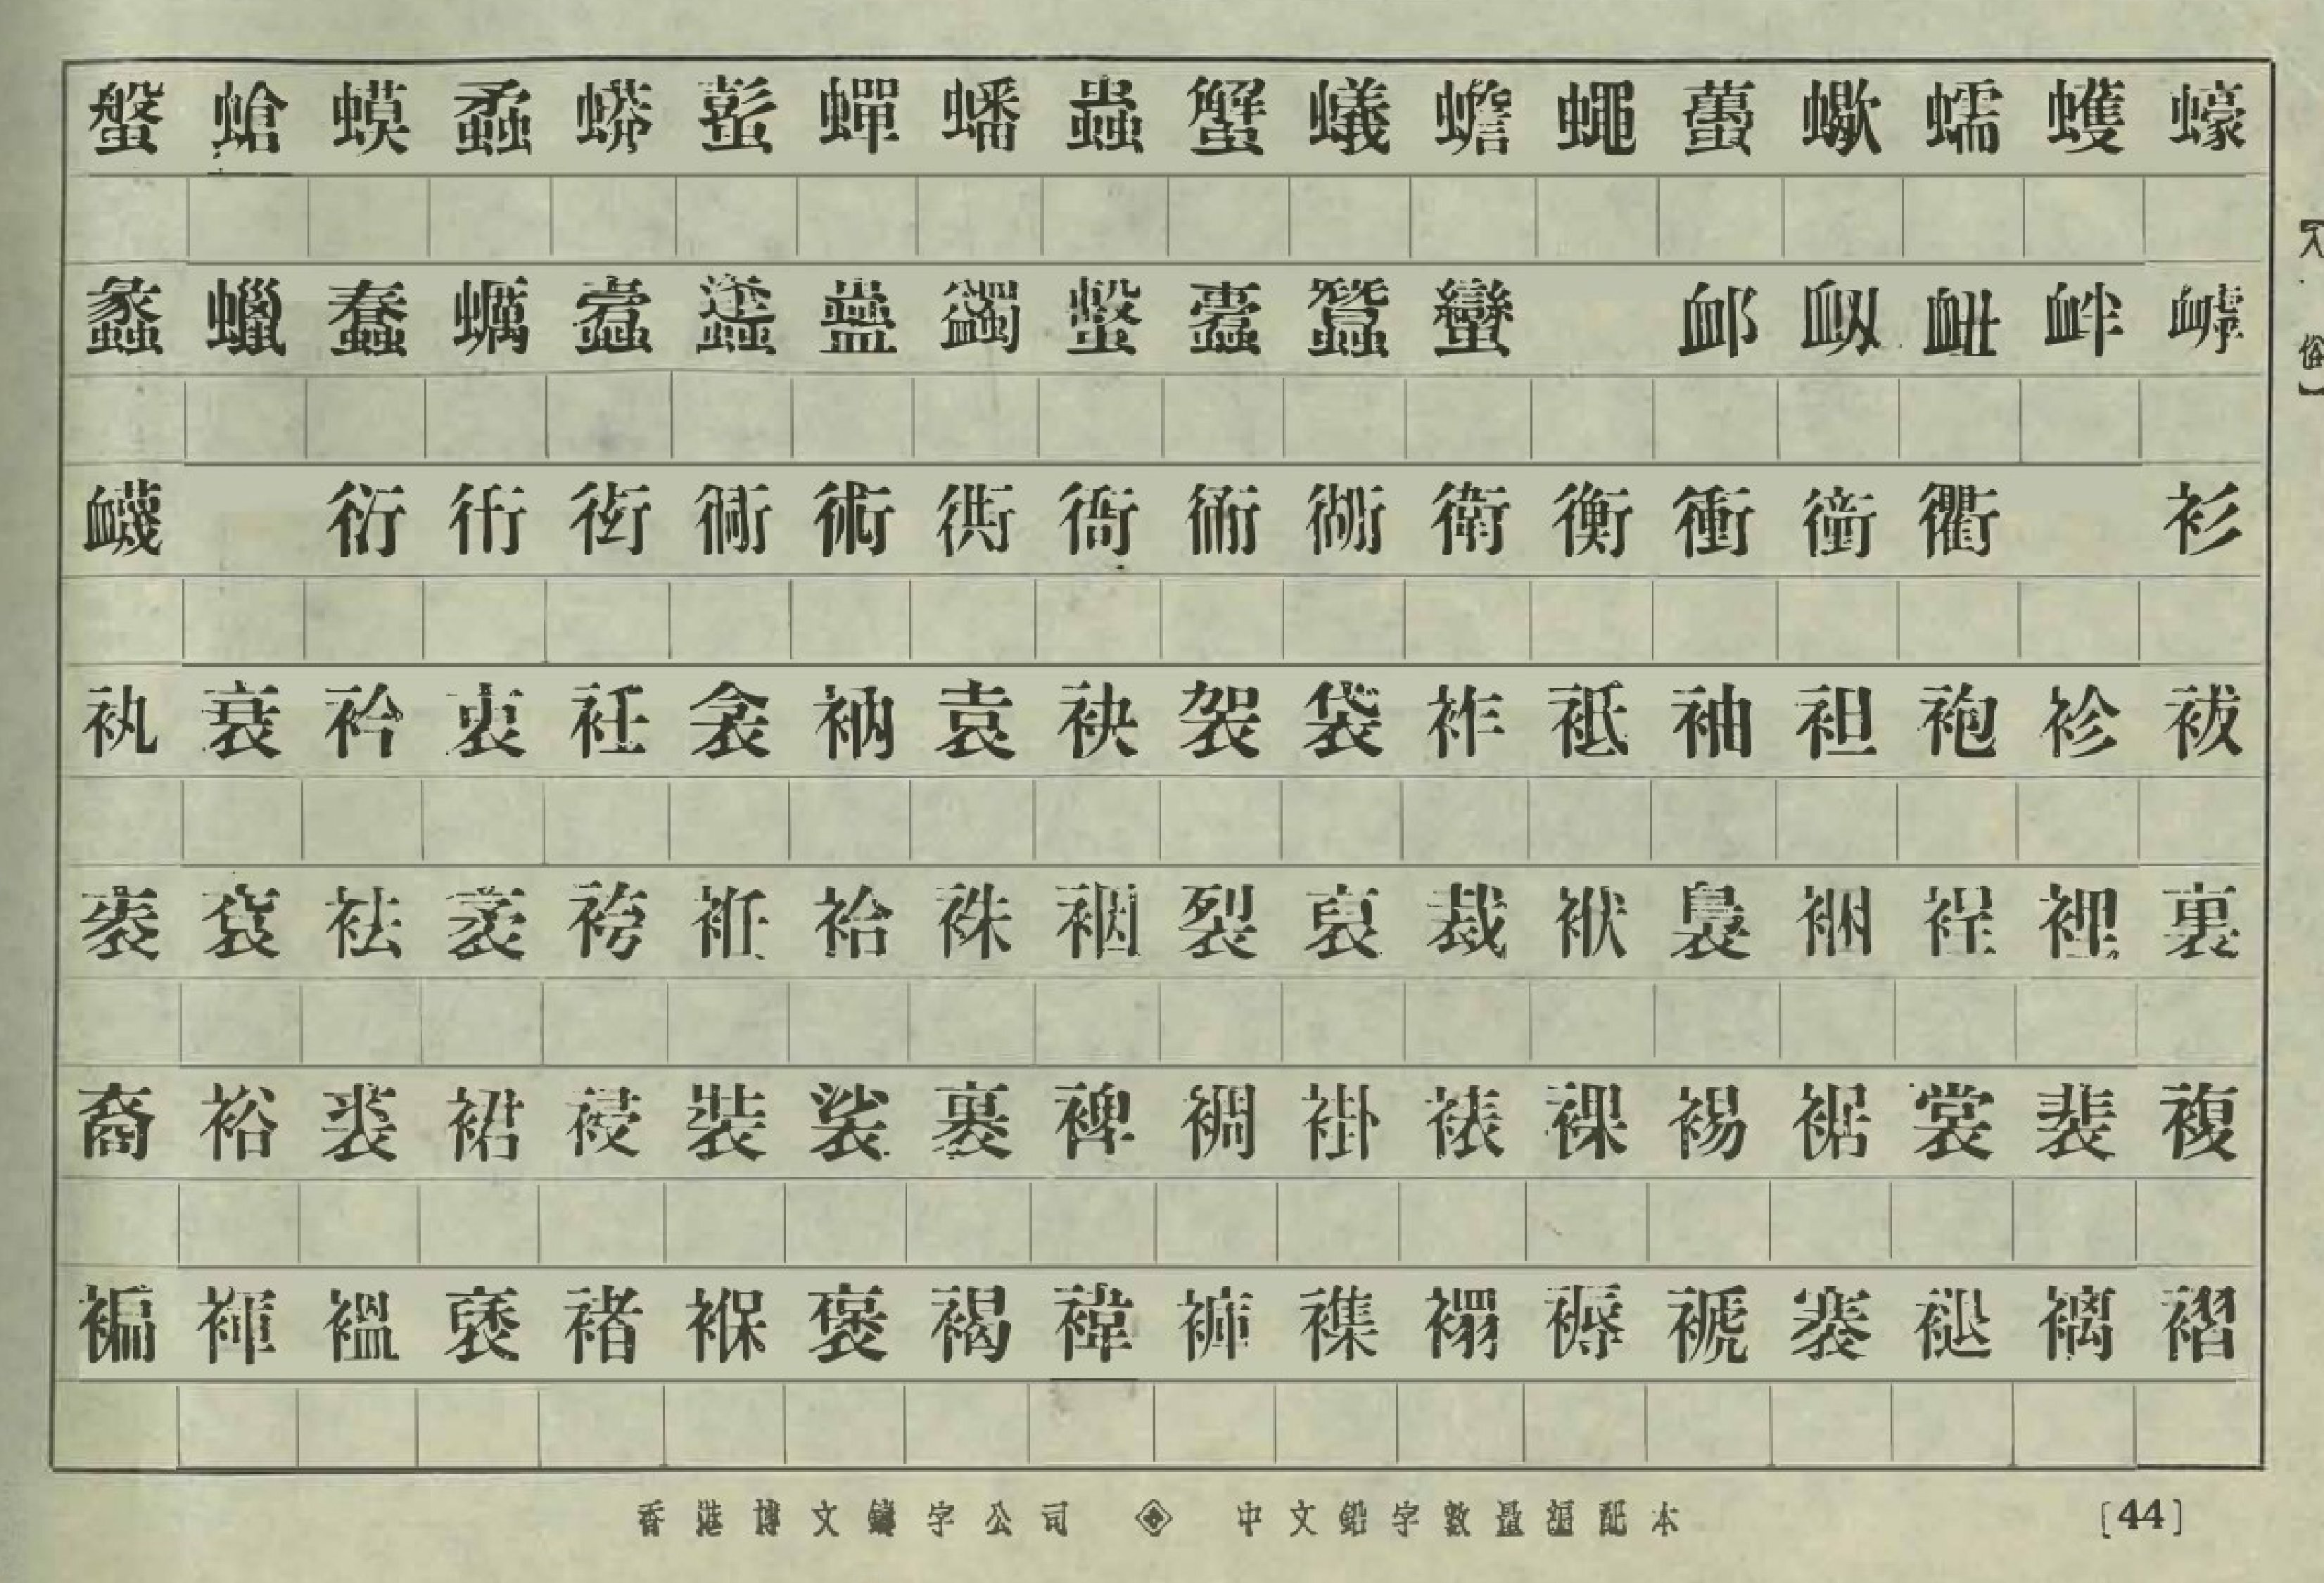 螌 螥 蟆 蟊 蠎 蟚 蟬 蟠 蟲 蟹 蟻 蟾 蠅 蠆 蠍 蠕 蠖 蠔
蠡 蠟 蠢 蠣 蠹 蠭 蠱 蠲 蠥 蠹 蠶 蠻 衃 衄 衅
衊 衍 衎 衒 衕 術 衖 衙 衚 衛 衡 衝 衢 衫
衰 衿 衷 衽 衾 衲 袁 袂 袈 袋 袏 袛 袖 袒 袍 袗 袚
袤 袞 袪 袠 袴 袵 袷 袾 裀 裂 裁 袱 裊 裎 裡 裏
裔 裕 裘 裙 裝 裟 裹 裨 裯 褂 裱 裸 裼 裾 裳 裴 複
褊 褌 褞 褒 褚 褓 褒 褐 褘 褲 褥 褫 褰 褪 褵 褶
香港博文鑄字公司 中文鉛字數量編配本 [44]